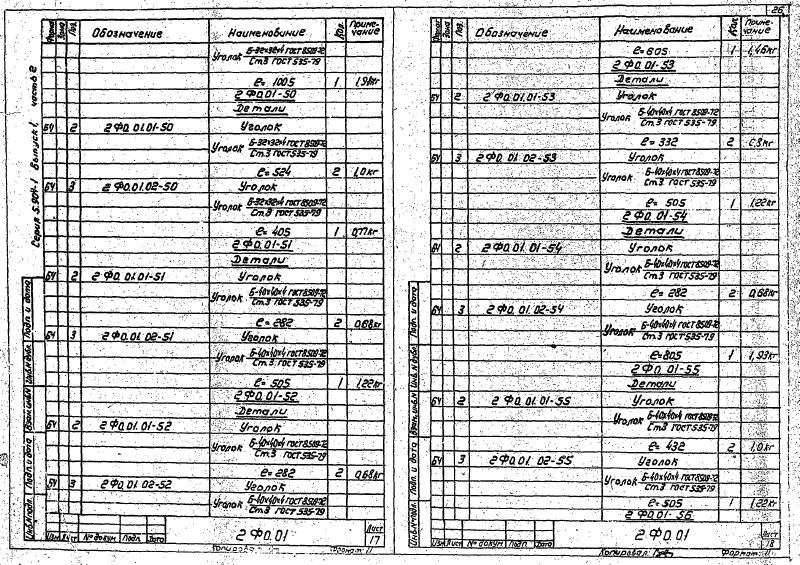 26
Серия 5.904-1 Выпуск 1 часть 2
Формат Зона Поз. Обозначение Наименование Кол. Примечание
Уголок Б-32х32х4 ГОСТ 8509-72
Ст.3 ГОСТ 535-79
ℓ= 1005 1
2Ф0.01-50
Детали
БЧ 2 2Ф0.01.01-50 Уголок
Уголок Б-32х32х4 ГОСТ 8509-72
Ст.3 ГОСТ 535-79
ℓ= 524 2 1,0кг
БЧ 3 2Ф0.01.02-50 Уголок
Уголок Б-32х32х4 ГОСТ 8509-72
Ст.3 ГОСТ 535-79
ℓ= 405 1 0,77кг
2Ф0.01-51
Детали
БЧ 2 2Ф0.01.01-51 Уголок
Уголок Б-40х40х4 ГОСТ 8509-72
Ст.3 ГОСТ 535-79
ℓ= 282 2 0,68кг
БЧ 3 2Ф0.01.02-51 Уголок
Уголок Б-40х40х4 ГОСТ 8509-72
Ст.3 ГОСТ 535-79
ℓ= 505 1 1,22кг
2Ф0.01-52
Детали
БЧ 2 2Ф0.01.01-52 Уголок
Уголок Б-40х40х4 ГОСТ 8509-72
Ст.3 ГОСТ 535-79
ℓ= 282 2 0,68кг
БЧ 3 2Ф0.01.02-52 Уголок
Уголок Б-40х40х4 ГОСТ 8509-72
Ст.3 ГОСТ 535-79
Инв.№подл. Подп. и дата Взам.инв.№ Инв.№дубл. Подп. и дата
Изм Лист № докум. Подп. Дата
2Ф0.01
Лист
17
Копировал Формат 11
Формат Зона Поз. Обозначение Наименование Кол. Примечание
ℓ= 605 1 1,46кг
2Ф0.01-53
Детали
БЧ 2 2Ф0.01.01-53 Уголок
Уголок Б-40х40х4 ГОСТ 8509-72
Ст.3 ГОСТ 535-79
ℓ= 332 2 0,8кг
БЧ 3 2Ф0.01.02-53 Уголок
Уголок Б-40х40х4 ГОСТ 8509-72
Ст.3 ГОСТ 535-79
ℓ= 505 1 1,22кг
2Ф0.01-54
Детали
БЧ 2 2Ф0.01.01-54 Уголок
Уголок Б-40х40х4 ГОСТ 8509-72
Ст.3 ГОСТ 535-79
ℓ= 282 2 0,68кг
БЧ 3 2Ф0.01.02-54 Уголок
Уголок Б-40х40х4 ГОСТ 8509-72
Ст.3 ГОСТ 535-79
ℓ=805 1 1,93кг
2Ф0.01-55
Детали
БЧ 2 2Ф0.01.01-55 Уголок
Уголок Б-40х40х4 ГОСТ 8509-72
Ст.3 ГОСТ 535-79
ℓ= 432 2 1,0кг
БЧ 3 2Ф0.01.02-55 Уголок
Уголок Б-40х40х4 ГОСТ 8509-72
Ст.3 ГОСТ 535-79
ℓ= 505 1 1,22кг
2Ф0.01-56
Инв.№подл. Подп. и дата Взам.инв.№ Инв.№дубл. Подп. и дата
Изм Лист № докум. Подп. Дата
2Ф0.01
Лист
18
Копировал: Формат 11